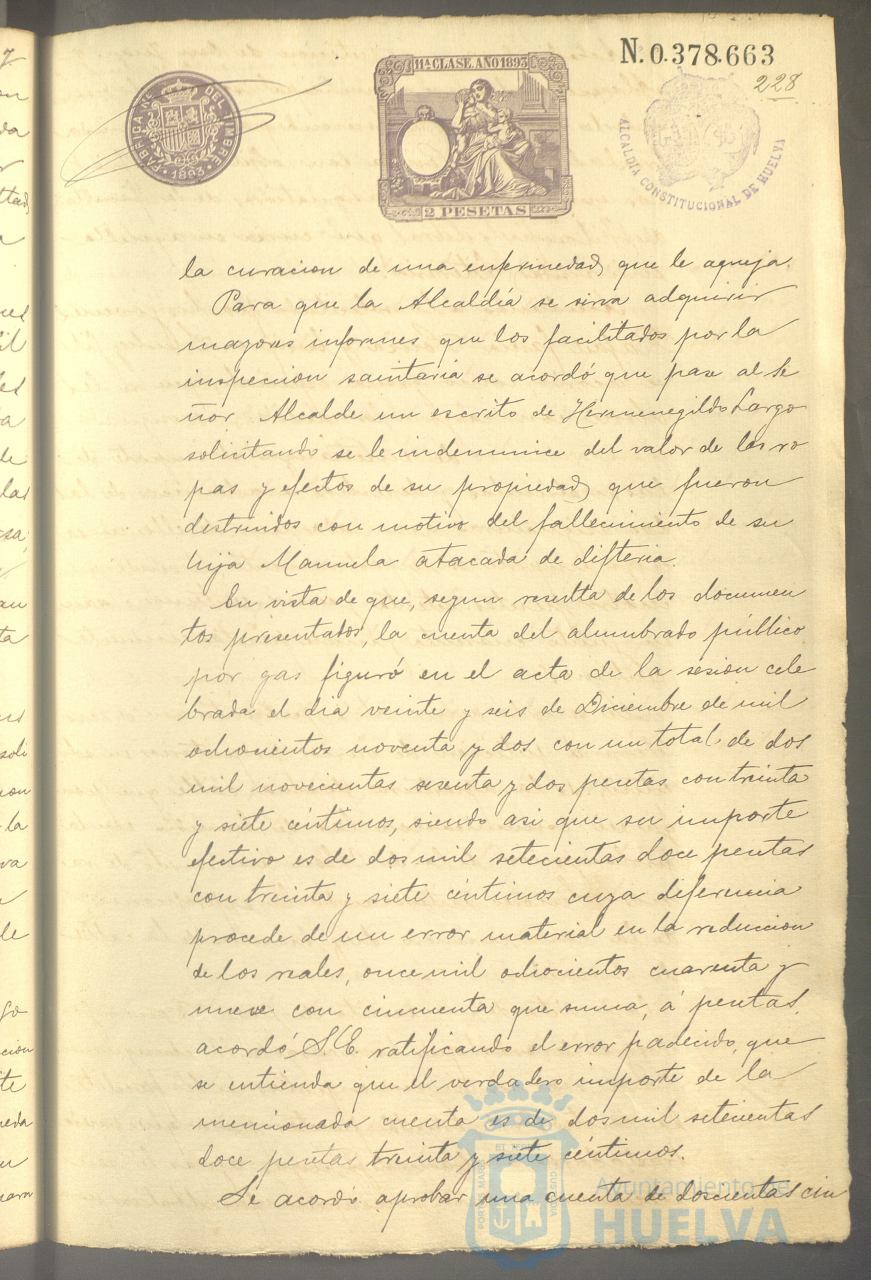 FABRICA Nal. DEL TIMBRE
1893
11ª CLASE. AÑO 1893
2 PESETAS
N. 0.378.663
228
ALCALDÍA CONSTITUCIONAL DE HUELVA
la curacion de una enfermedad que le aqueja.
Para que la Alcaldía se sirva adquirir
mayores informes que los facilitados por la
inspeccion sanitaria se acordó que pase al Se
ñor Alcalde un escrito de Hermenegildo Largo
solicitando se le indemnice del valor de las ro
pas y efectos de su propiedad que fueron
destruidos con motivo del fallecimiento de su
hija Manuela atacada de difteria.
En vista de que, segun resulta de los documen
tos presentados, la cuenta del alumbrado público
por gas figuró en el acta de la sesion cele
brada el dia veinte y seis de Diciembre de mil
ochocientos noventa y dos con un total de dos
mil novecientas sesenta y dos pesetas con treinta
y siete céntimos, siendo asi que su importe
efectivo es de dos mil setecientas doce pesetas
con treinta y siete céntimos cuya diferencia
procede de un error material en la reduccion
de los reales, once mil ochocientos cuarenta y
nueve con cincuenta que suma, á pesetas,
acordó S. E. ratificando el error padecido, que
se entienda que el verdadero importe de la
mencionada cuenta es de dos mil setecientas
doce pesetas treinta y siete céntimos.
Se acordó aprobar una cuenta de doscientas cin
PORTUS MARIS ET TERRAE CUSTODIA
Ayuntamiento de
HUELVA